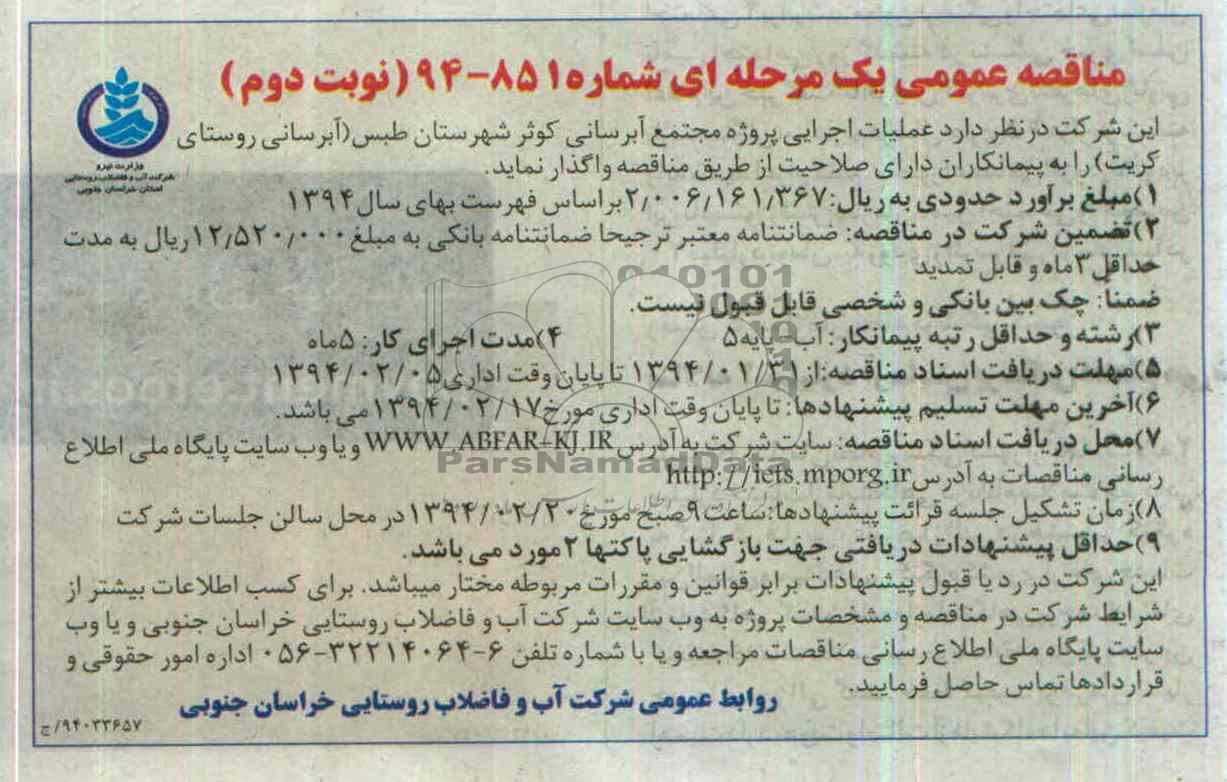 مناقصه عمومی یک مرحله ای شماره ۸۵۱-۹۴ (نوبت دوم)
وزارت نیرو
شرکت آب و فاضلاب روستایی
استان خراسان جنوبی
این شرکت در نظر دارد عملیات اجرایی پروژه مجتمع آبرسانی کوثر شهرستان طبس(آبرسانی روستای
کریت) را به پیمانکاران دارای صلاحیت از طریق مناقصه واگذار نماید.
۱)مبلغ برآورد حدودی به ریال: ۲٫۰۰۶٫۱۶۱٫۳۶۷ براساس فهرست بهای سال ۱۳۹۴
۲)تضمین شرکت در مناقصه: ضمانتنامه معتبر ترجیحا ضمانتنامه بانکی به مبلغ ۱۲٫۵۲۰٫۰۰۰ ریال به مدت
حداقل ۳ ماه و قابل تمدید
ضمنا: چک بین بانکی و شخصی قابل قبول نیست.
۳)رشته و حداقل رتبه پیمانکار: آب - پایه ۵ ۴)مدت اجرای کار: ۵ ماه
۵)مهلت دریافت اسناد مناقصه: از ۱۳۹۴/۰۱/۳۱ تا پایان وقت اداری ۱۳۹۴/۰۲/۰۵
۶)آخرین مهلت تسلیم پیشنهادها: تا پایان وقت اداری مورخ ۱۳۹۴/۰۲/۱۷ می باشد.
۷)محل دریافت اسناد مناقصه: سایت شرکت به آدرس WWW.ABFAR-KJ.IR و یا وب سایت پایگاه ملی اطلاع
رسانی مناقصات به آدرس http://iets.mporg.ir
۸)زمان تشکیل جلسه قرائت پیشنهادها: ساعت ۹ صبح مورخ ۱۳۹۴/۰۲/۲۰ در محل سالن جلسات شرکت
۹)حداقل پیشنهادات دریافتی جهت بازگشایی پاکتها ۲ مورد می باشد.
این شرکت در رد یا قبول پیشنهادات برابر قوانین و مقررات مربوطه مختار میباشد. برای کسب اطلاعات بیشتر از
شرایط شرکت در مناقصه و مشخصات پروژه به وب سایت شرکت آب و فاضلاب روستایی خراسان جنوبی و یا وب
سایت پایگاه ملی اطلاع رسانی مناقصات مراجعه و یا با شماره تلفن ۶-۳۲۲۱۴۰۶۴-۰۵۶ اداره امور حقوقی و
قراردادها تماس حاصل فرمایید.
روابط عمومی شرکت آب و فاضلاب روستایی خراسان جنوبی
۹۴۰۳۳۶۵۷/ج
ParsNamadData